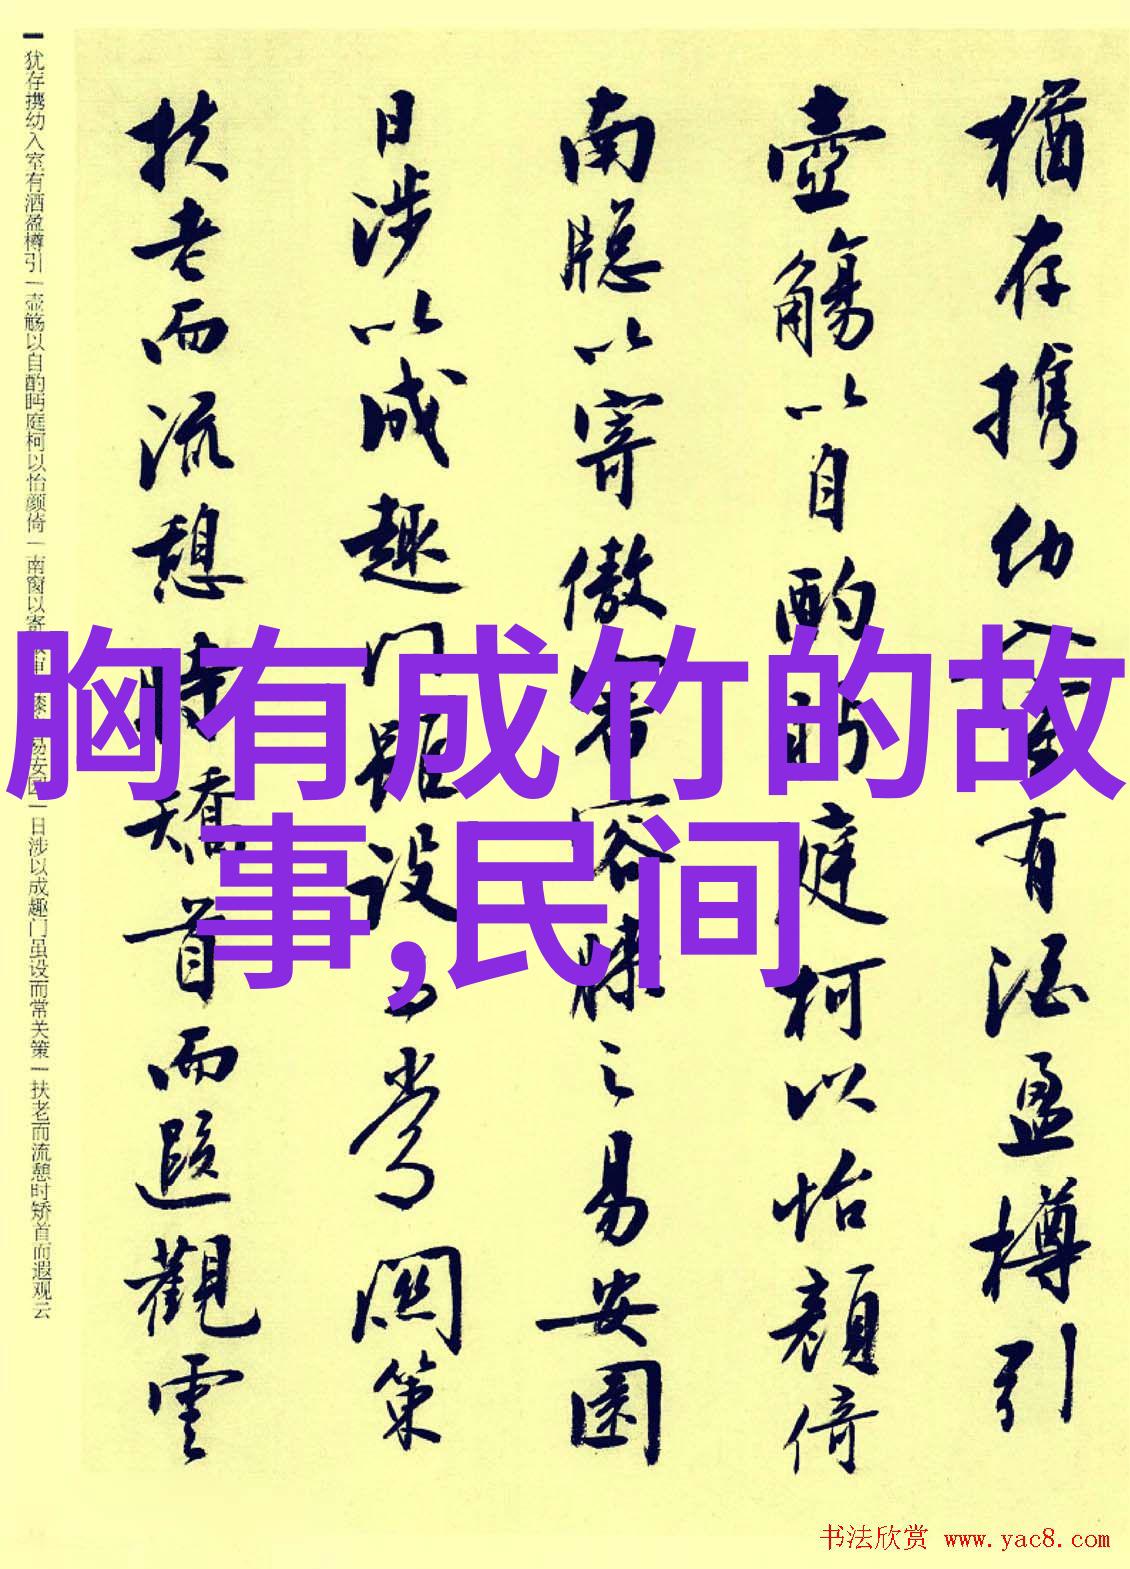 猶存携幼入室有酒盈樽引
壺觴以自酌眄庭柯以怡顏倚
南牕以寄傲審容膝之易安園
日涉以成趣門雖設而常關策
扶老而流憩時矯首而遐觀雲
犹存携幼入室有洒盈樽引一壶觞以自酌眄庭柯以怡颜倚一南窗以寄 膝 易安园一日涉以成趣门虽设而常关策一扶老而流憩时矫首而遐观云
胸有成竹的故
事,民间
书法欣赏 www.yac8.com